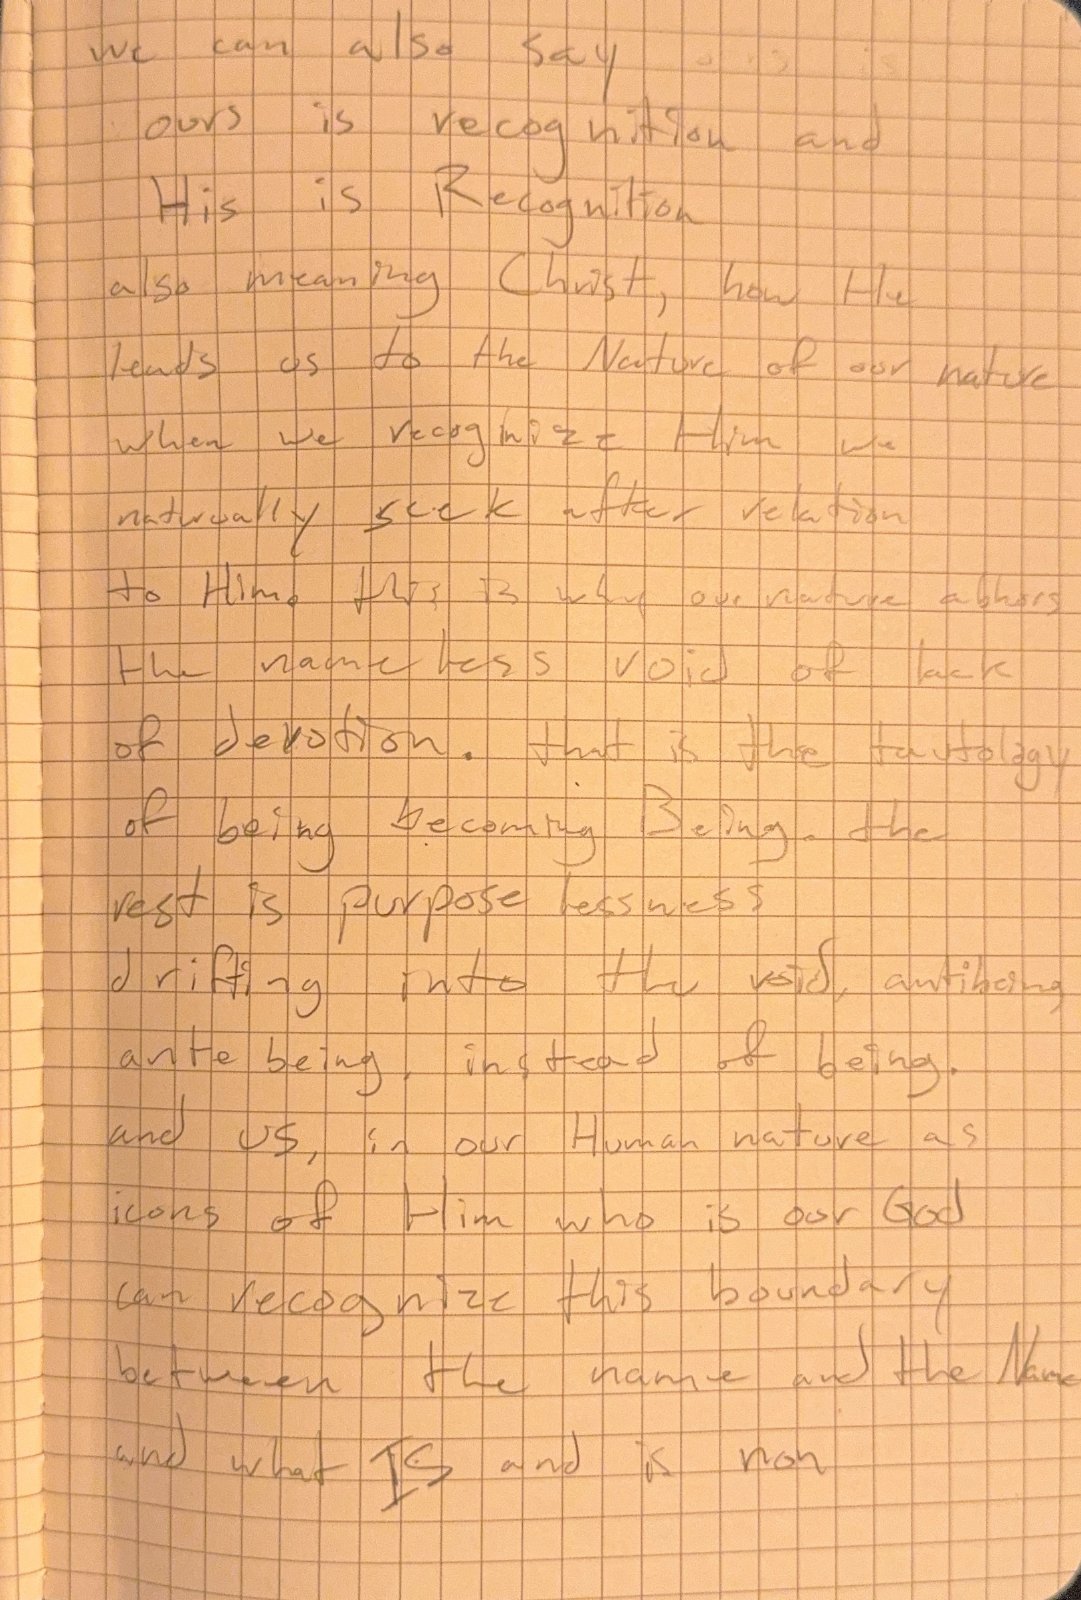 we can also say
ours is recognition and
His is Recognition
also meaning Christ, how He
leads us to the Nature of our nature
when we recognize Him we
naturually seek after relation
to Him. this is why our nature abhors
the nameless void of lack
of devotion. that is the tautology
of being becoming Being. the
rest is purposelessness
drifting into the void, antibeing
ante being, instead of being.
and us, in our Human nature as
icons of Him who is our God
can recognize this boundary
between the name and the Name
and what IS and is non